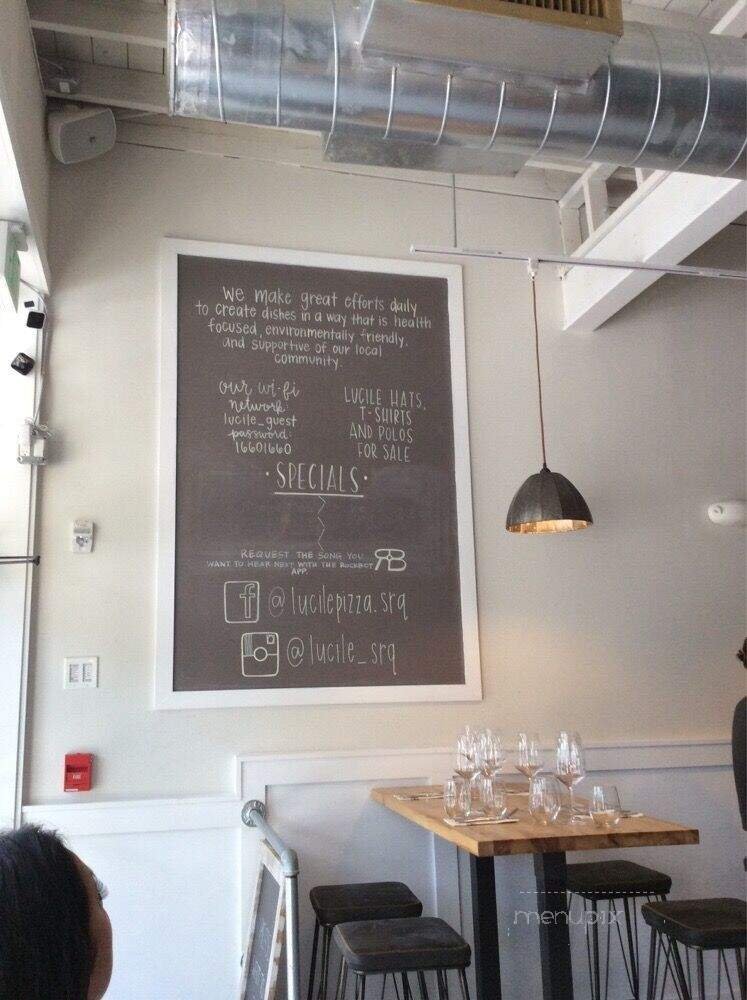 we make great efforts daily
to create dishes in a way that is health
focused, environmentally friendly,
and supportive of our local
community.
our wi-fi
network:
lucile_guest
password:
16601660
LUCILE HATS,
T-SHIRTS
AND POLOS
FOR SALE
· SPECIALS ·
REQUEST THE SONG YOU
WANT TO HEAR NEXT WITH THE ROCKBOT
APP.
RB
f @lucilepizza.srq
@lucile_srq
FIRE
menupix